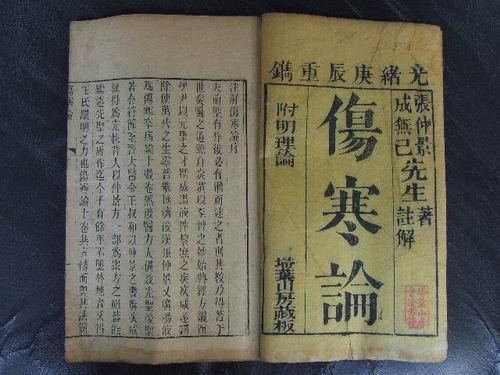 光緒庚辰重鐫
張仲景先生著
成無己註解
傷寒論
附明理論
埽葉山房藏板
註解傷寒論序
夫前聖有作後必有繼而述之者則其教乃得著于
世矣醫之道源自炎黃以至神之妙始興經方繼而
伊尹以元聖之才撰成湯液俾黎庶之疾疢咸遂蠲
除使萬代之生靈普蒙拯濟後漢張仲景又廣湯液
為傷寒卒病論十數卷然後醫方大備茲先聖後聖
若合符節至晉太醫令王叔和以仲景之書撰次成
敘得為完帙昔人以仲景方一部為眾方之祖蓋能
繼述先聖之所作迄今千有餘年不墜於地者又得
王氏闡明之力也傷寒論十卷其言精而奧其法簡